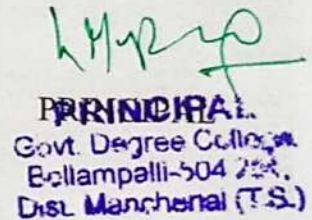 PRINCIPAL
Govt. Degree College
Bellampalli-504
Dist. Mancherial (T.S.)